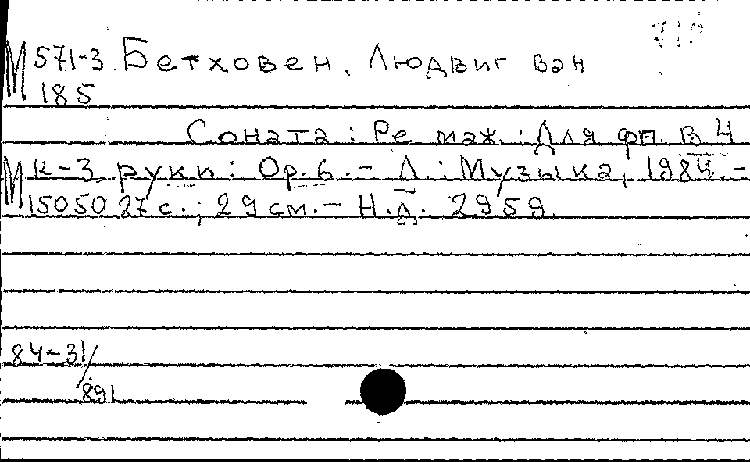 М 571-3 Бетховен, Людвиг ван
185
Соната: Ре маж.: Для фп. в 4
М к-3 руки: Ор. 6. - Л.: Музыка, 1984. -
15050 27 с.; 29 см. - Н.д. 2959.
84-31/
891